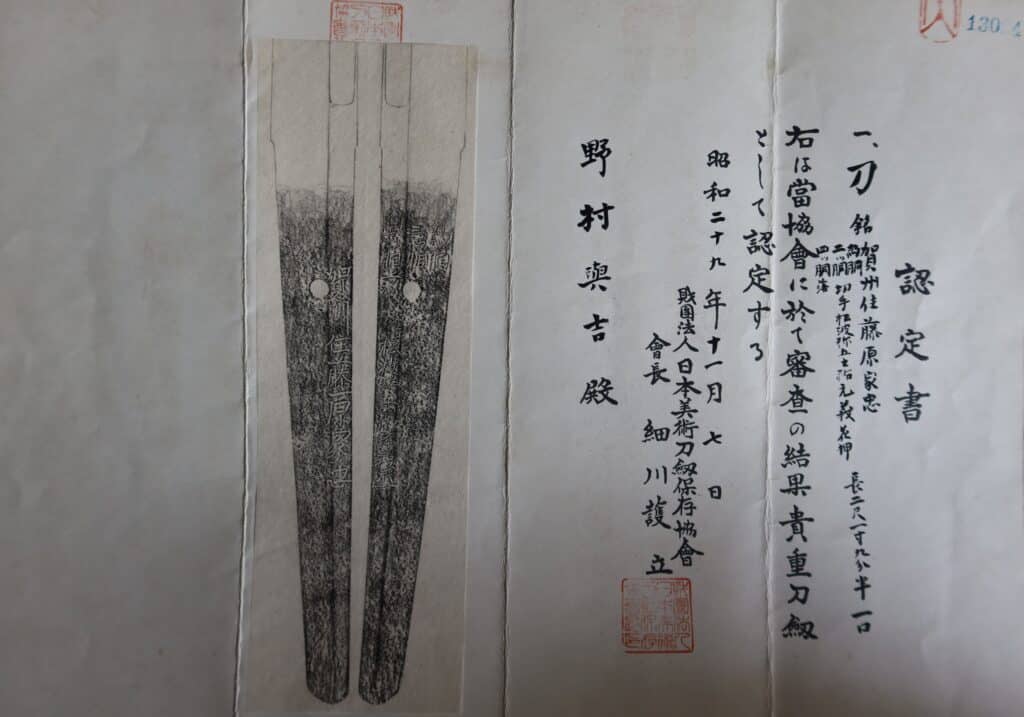 認定書
一、刀 銘 賀州住藤原家忠
両胴
二ツ胴切手松波
四ツ胴落
花押
長二尺一寸九分半 一口
右は當協會に於て審査の結果貴重刀劔
として認定する
昭和二十九年十一月七日
財團法人日本美術刀劔保存協會
會長 細川護立
野村與吉殿
賀州住藤原家忠
130 4